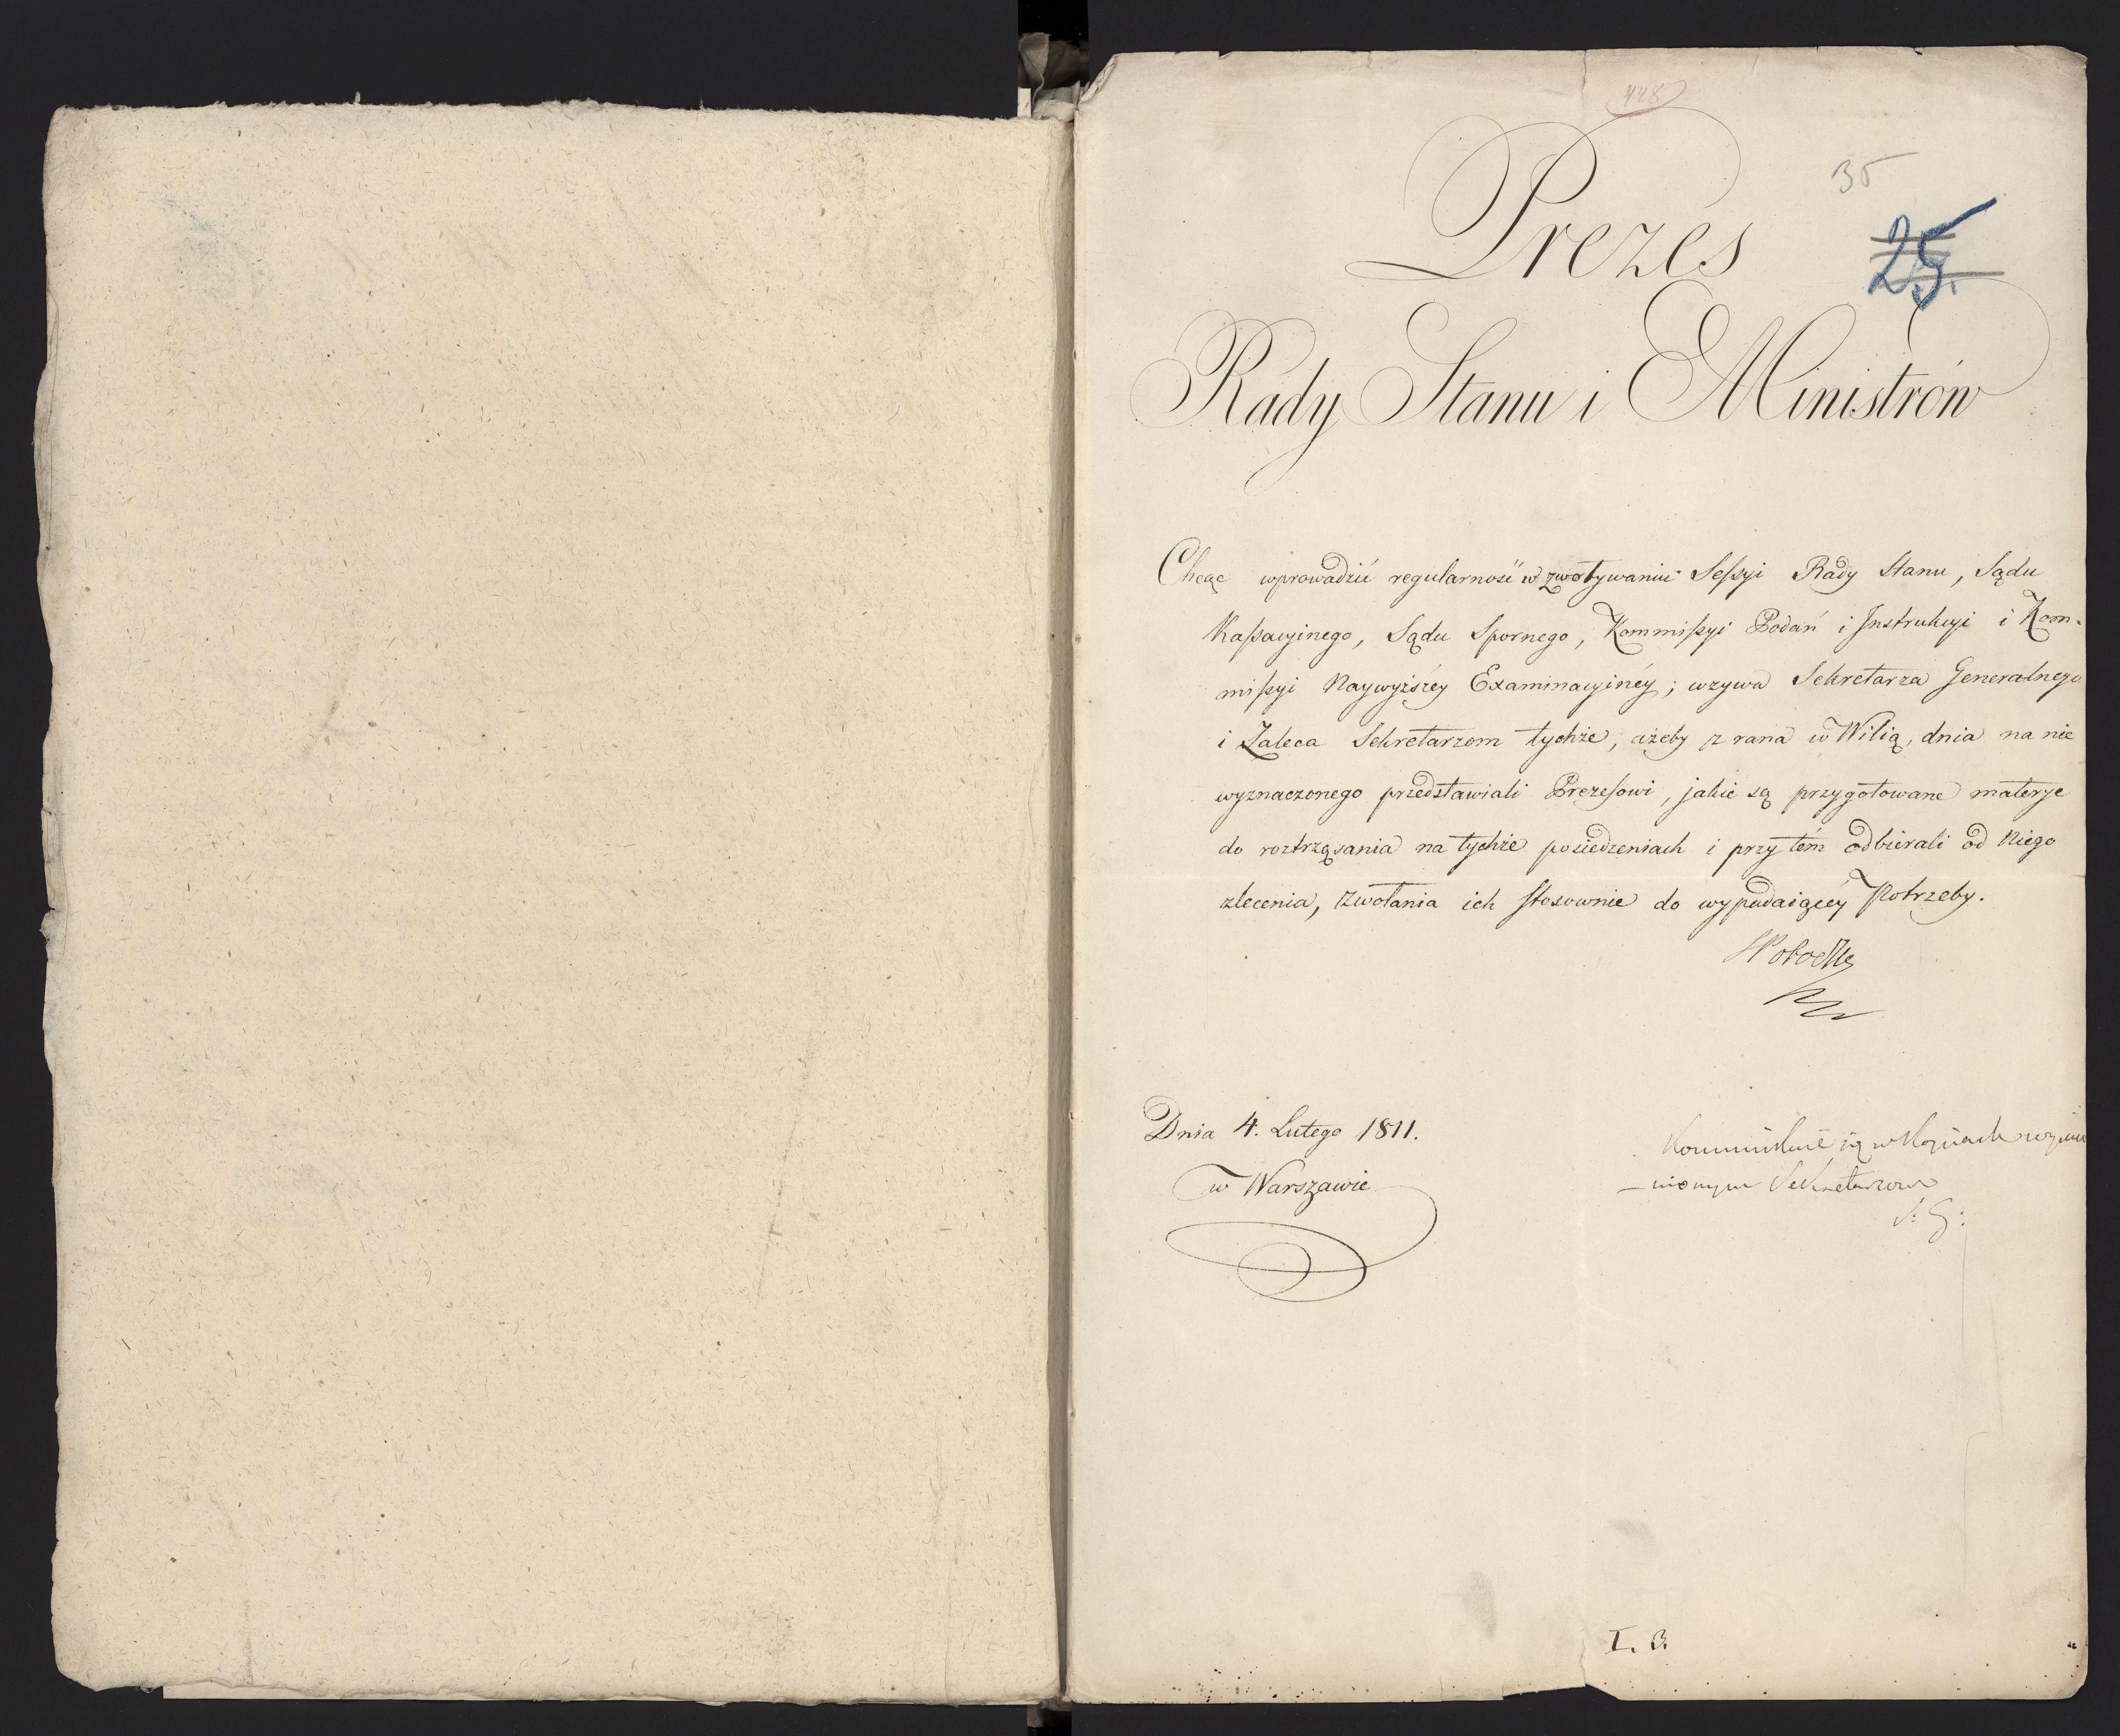 448
35
Prezes
25.
Rady Stanu i Ministrów
Chcąc wprowadzić regularność w zwoływaniu Sessyi Rady Stanu, Sądu
Kassacyinego, Sądu Spornego, Kommissyi Podań i Instrukcyi i Kom-
missyi Naywyższéy Examinacyinéy; wzywa Sekretarza Generalnego
i Zaleca Sekretarzom tychże, ażeby z rana w Wilią, dnia na nie
wyznaczonego przedstawiali Prezesowi, jakie są przygotowane materye
do roztrząsania na tychże posiedzeniach i przy tém odbierali od Niego
zlecenia, zwołania ich stosownie do wypadaiącéy Potrzeby.
SPotocki
Dnia 4. Lutego 1811.
w Warszawie
Kommunikuie się w kopiach wymie
-nionym Sekretarzom
S: G:
I. 3.